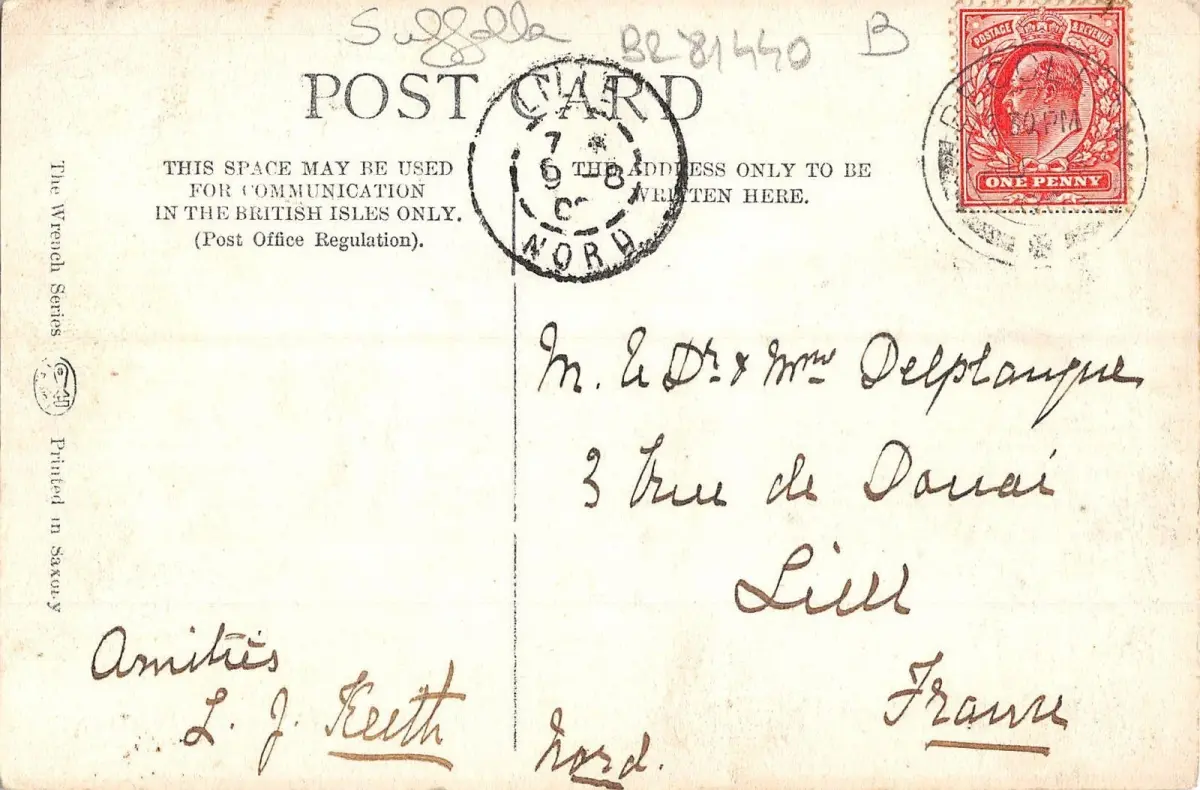 Suffolk B281440 B
POST CARD
THIS SPACE MAY BE USED
FOR COMMUNICATION
IN THE BRITISH ISLES ONLY.
(Post Office Regulation).
THE ADDRESS ONLY TO BE
WRITTEN HERE.
LILLE
7 *
9 - 8
NORD
POSTAGE & REVENUE
30 PM
ONE PENNY
The Wrench Series
Printed in Saxony
M. le Dr. & Mme Delplanque
3 rue de Douai
Lille
France
Nord.
Amitiés
L. J. Keith